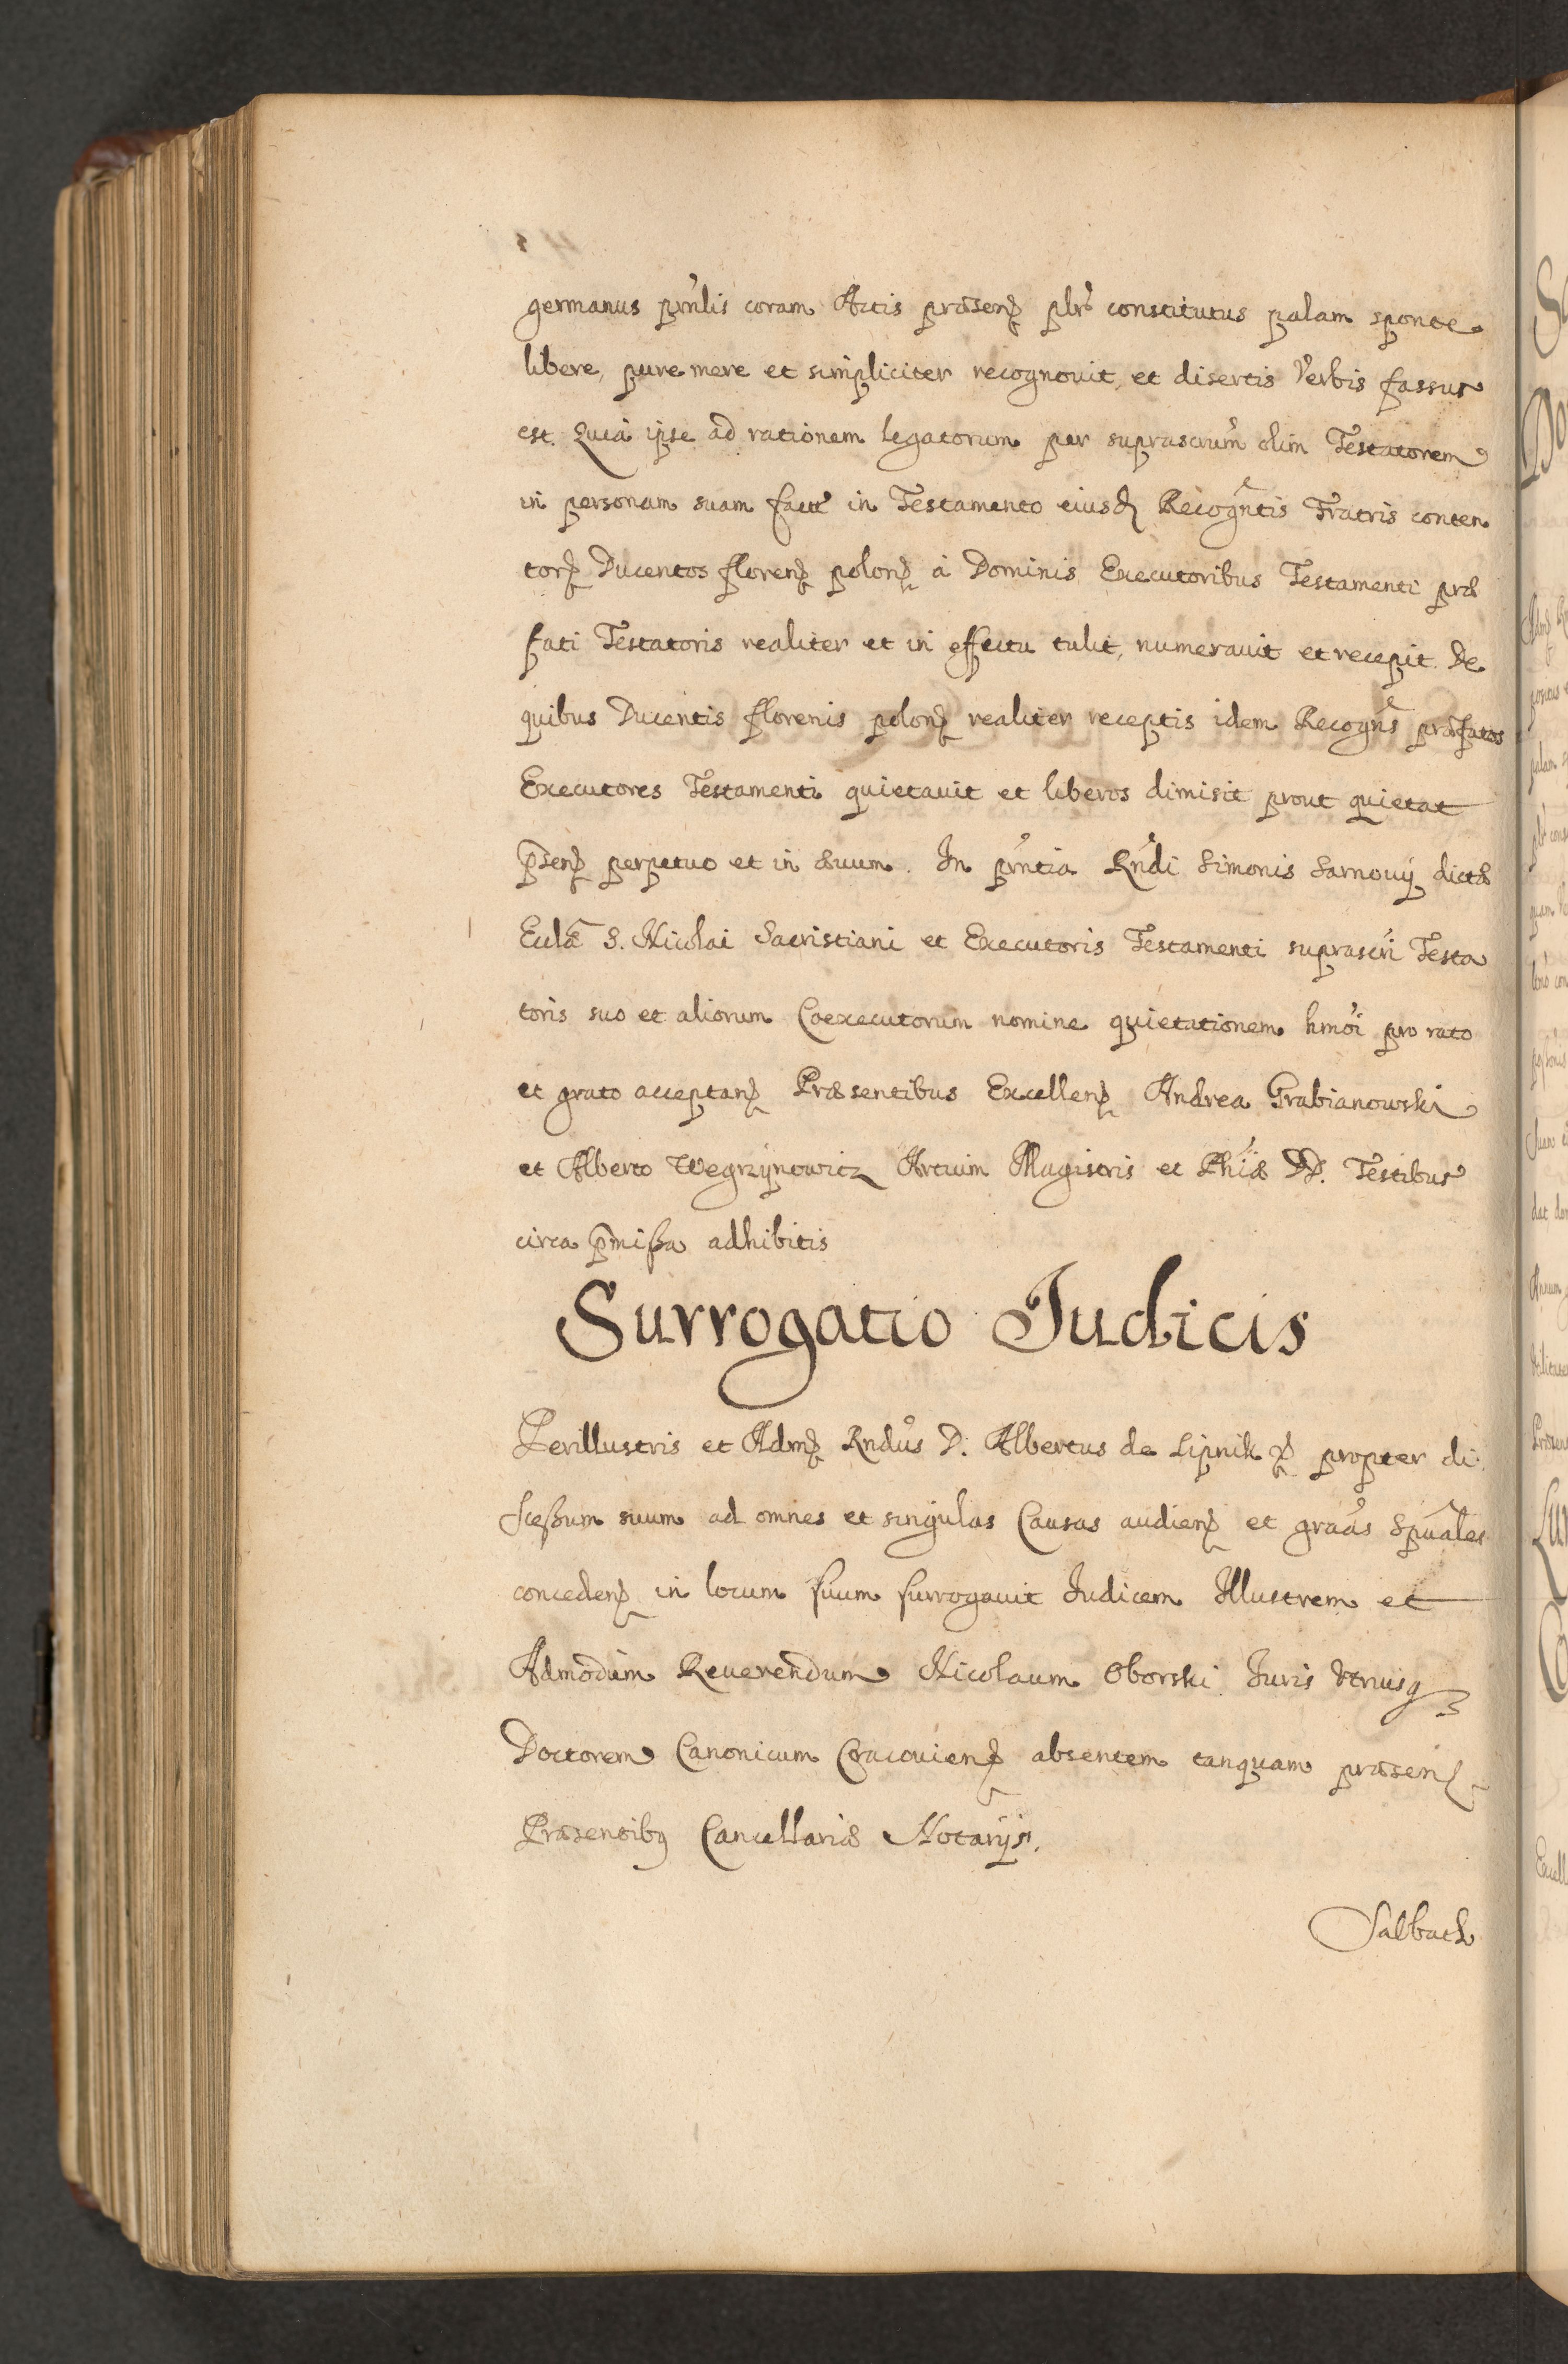 germanus prñlis coram Actis præsen̄ plr̃ constitutus palam sponte
libere, pure mere et simpliciter recognouit, et disertis Verbis fassus
est. Quia ipse ad rationem legatorum per suprascrũm olim Testatorem
in personam suam factæ in Testamento eiusd Recogñtis Fratris conten
tor̄ Ducentos floren̄ polon̄ à Dominis Executoribus Testamenti præ
fati Testatoris realiter et in effectu tulit, numerauit et recepit. De
quibus Ducentis florenis polon̄ realiter receptis idem Recogñs præfatos
Executores Testamenti quietauit et liberos dimisit prout quietat
p̃sen̄ perpetuo et in æuum. In prñtia Rñdi Simonis Sarnouij dictæ
Eccláe S. Nicolai Sacristiani et Executoris Testamenti suprascrĩ Testa
toris suo et aliorum Coexecutorum nomine quietationem hmõi pro rato
et grato acceptan̄ Præsentibus Excellen̄ Andrea Grabianowski
et Alberto Wegrzÿnowicz Artium Magistris et Phĩæ DD. Testibus
circa p̃missa adhibitis
Surrogatio Judicis
Perillustris et Adm̄ Rndũs D. Albertus de Lipnik propter di
scessum suum ad omnes et singulas Causas audien̄ et graãs Spũales
conceden̄ in locum suum surrogauit Judicem Illustrem et
Admodum Reuerendum Nicolaum Oborski Juris Vtriusq3
Doctorem Canonicum Cracouien̄ absentem tanquam præsen̄
Præsentib9 Cancellariæ Notarijs.
Salbach